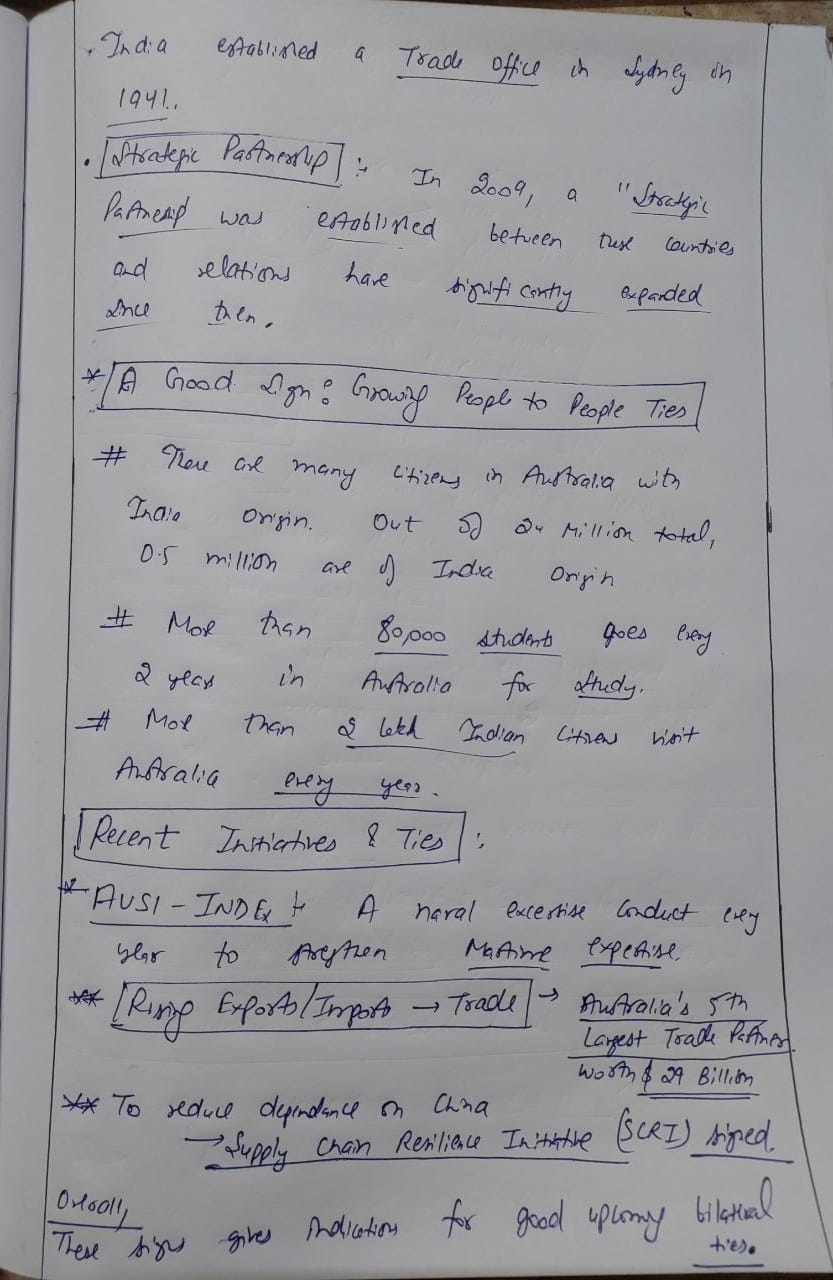 . India established a Trade Office in Sydney in
1941.
. Strategic Partnership :- In 2009, a "Strategic
Partnership was established between these countries
and relations have significantly expanded
since then.
* A Good Sign : Growing People to People Ties
# There are many citizens in Australia with
India Origin. Out of 24 Million total,
0.5 million are of India Origin
# More than 80,000 students goes every
2 years in Australia for study.
# More than 2 lakh Indian Citizens visit
Australia every year.
Recent Initiatives & Ties :
* AUSI-INDEx :- A naval excersise conduct every
year to stregthen Maritime expertise.
** Rising Exports/Imports → Trade → Australia's 5th
Largest Trade Partner
worth $ 29 Billion
** To reduce dependance on China
→ Supply Chain Resilience Initiative (SCRI) signed.
Overall,
These signs gives indications for good upcoming bilateral
ties.